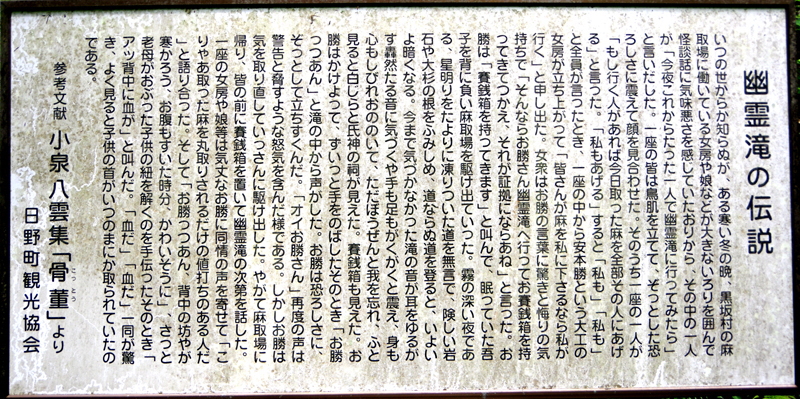 幽霊滝の伝説
いつの世からか知らぬが、ある寒い冬の晩、黒坂村の麻
取場に働いている女房や娘などが大きないろりを囲んで
怪談話に気味悪さを感じていたおりから、その中の一人
が「今夜これからたった一人で幽霊滝に行ってみたら」
と言いだした。一座の皆は鳥肌を立てて、そっとした恐
ろしさに震えて顔を見合わせた。そのうち一座の一人が
「もし行く人があれば今日取った麻を全部その人にあげ
る」と言った。「私もあげる」すると「私も」「私も」
と全員が言ったとき、一座の中から安本勝という大工の
女房が立ち上がって「皆さんが麻を私に下さるなら私が
行く」と申し出た。女衆はお勝の言葉に驚きと悔りの気
持ちで「そんならお勝さん幽霊滝へ行ってお賽銭箱を持
ってきてつかえ、それが証拠にならあね」と言った。お
勝は「賽銭箱を持ってきます」と叫んで、眠っていた吾
子を背に負い麻取場を駆け出ていった。霧の深い夜であ
る、星明りをたよりに凍りついた道を無言で、険しい岩
石や大杉の根をふみしめ、道ならぬ道を登ると、いよい
よ暗くなる。今まで気づかなかった滝の音が耳をゆるが
す轟然たる音に気づくや手も足もがくがくと震え、身も
心もしびれおののいて、ただぼうぜんと我を忘れ、ふと
見ると白じらと氏神の祠が見えた。賽銭箱も見えた。お
勝はかけよって、ずいっと手をのばしたそのとき「お勝
っつあん」と滝の中から声がした。お勝は恐ろしさに、
ぞっとして立ちすくんだ。「オイお勝さん」再度の声は
警告と脅すような怒気を含んだ様である。しかしお勝は
気を取り直していっさんに駆け出した。やがて麻取場に
帰り、皆の前に賽銭箱を置いて幽霊滝の次第を話した。
一座の女房や娘等は気丈なお勝に同情の声を寄せて「こ
りゃあ取った麻を丸取りされるだけの値打ちのある人だ
」と語り合った。そして「お勝っつあん、背中の坊やが
寒かろう、お腹もすいた時分、かわいそうに」、さっと
老母がおぶった子供の紐を解くのを手伝ったそのとき「
アッ背中に血が」と叫んだ。「血だ」「血だ」一同が驚
き、よく見ると子供の首がいつのまにか取られていたの
である。
参考文献 小泉八雲集「骨董」より
こっとう
日野町観光協会